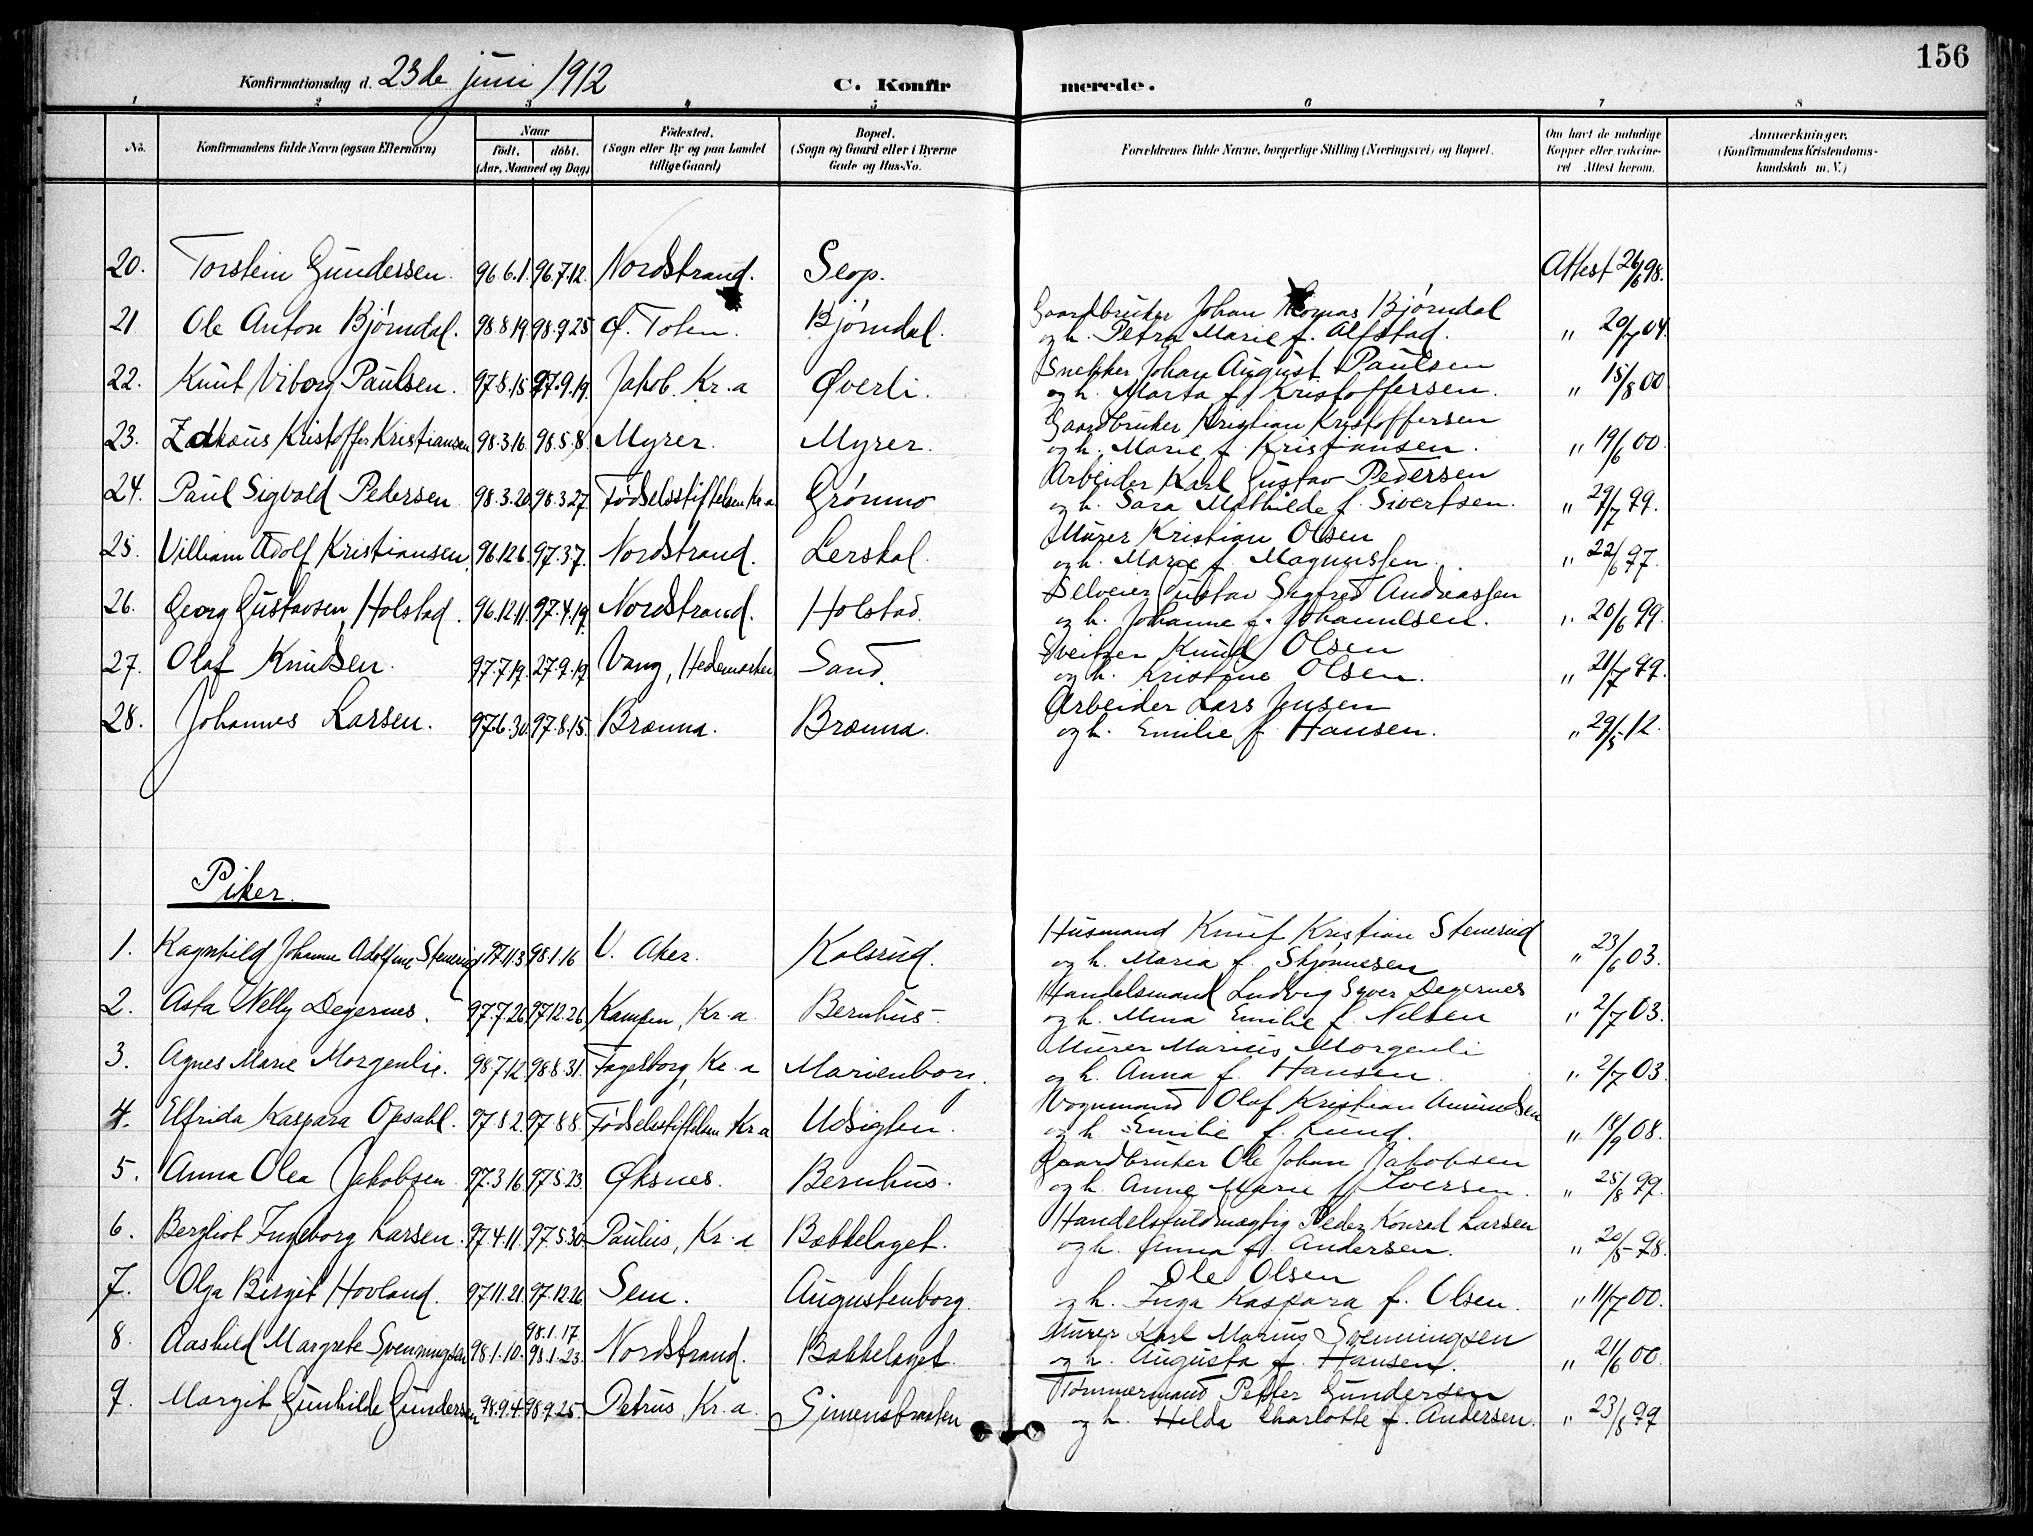 156
Konfirmationsdag d. 23de juni 1912 C. Konfirmerede.
1 2 3 4 5 6 7 8
No. Konfirmandens fulde Navn (ogsaa Efternavn) Naar født, døbt. (Aar, Maaned og Dag) Fødested. (Sogn eller By og paa Landet tillige Gaard) Bopæl. (Sogn og Gaard eller i Byerne Gade og Hus-No. Forældrenes fulde Navne, borgerlige Stilling (Næringsvei) og Bopæl. Om havt de naturlige Kopper eller vakcineret Attest herom. Anmærkninger. (Konfirmandens Kristendomskundskab m. V.)
20. Torstein Gundersen. 96.6.1. 96.7.12. Nordstrand. Seop. Attest 26/6 98.
21 Ole Anton Bjørndal. 98.8.19. 98.9.25 Ø. Toten. Bjørndal. Gaardbruker Johan Thomas Bjørndal
og h. Petra Marie f. Alfstad. " 20/7 04.
22. Knut Viborg Paulsen. 97.8.15 97.9.19. Jakob Kr.a Øverli. Snekker Johan August Paulsen
og h. Marta f. Kristoffersen. " 15/8 00
23. Zakæus Kristoffer Kristiansen 98.3.16. 98.5.8. Myrer. Myrer. Gaardbruker Kristian Kristoffersen
og h. Marie f. Kristiansen. " 19/6 00.
24. Paul Sigvald Pedersen 98.3.20. 98.3.27. Fødselsstiftelsen Kr.a Grønmo Arbeider Karl Gustav Pedersen
og h. Sara Mathilde f. Sivertsen. " 29/7 99.
25. Villiam Adolf Kristiansen 96.12.6. 97.3.7. Nordstrand. Lerskal. Murer Kristian Olsen
og h. Marie f. Magnussen. " 22/6 97.
26. Georg Gustavsen Holstad. 96.12.11. 97.4.19. Nordstrand. Holstad. Selveier Gustav Sigfred Andreassen
og h. Johanne f. Johannesen. " 20/6 99.
27. Olaf Knudsen. 97.7.19. 27.9.19 Vang, Hedemarken Sand. Sveitser Knud Olsen
og h. Kristine Olsen. " 21/7 99.
28. Johannes Larsen. 97.6.30. 97.8.15. Brænna. Brænna. Arbeider Lars Jensen
og h. Emilie f. Hansen. " 29/5 12.
Piker.
1. Ragnhild Johanne Adolfine Stenerud 97.11.3 98.1.16 V. Aker. Kolsrud. Husmand Knut Kristian Stenerud
og h. Maren f. Skjønnesen " 23/6 03.
2. Asta Nelly Degernes. 97.7.26 97.12.26 Kampen, Kr.a Bernhus. Handelsmand Ludvig Syver Degernes
og h. Mina Emilie f. Nilsen " 2/7 03.
3. Agnes Marie Morgenlie. 98.7.12 98.8.31. Fagerborg, Kr.a Marienborg. Murer Marius Morgenli
og h. Anna f. Hansen. " 2/7 03.
4. Elfrida Kaspara Opsahl. 97.8.2. 97.8.8. Fødselsstiftelsen Kr.a Udsigten. Vognmand Olaf Kristian Amundsen
og h. Emilie f. Lund. " 18/9 08.
5. Anna Olea Jakobsen 97.3.16. 97.5.23. Øksnes. Bernhus. Gaardbruker Ole Johan Jakobsen
og h. Anne Marie f. Iversen. " 25/8 99.
6. Bergliot Ingeborg Larsen. 97.4.11. 97.5.30. Paulus, Kr.a Bækkelaget. Handelsfuldmægtig Peder Konrad Larsen
og h. Anna f. Andersen. " 20/5 98.
7. Olga Birgit Hovland. 97.11.21. 97.12.26. Sem. Augustenborg. Ole Olsen
og h. Inga Kaspara f. Olsen. " 11/7 00.
8. Aashild Margrete Svenningsen 98.1.10. 98.1.17 98.1.23. Nordstrand. Bækkelaget. Murer Karl Marius Svenningsen
og h. Augusta f. Hansen. " 21/6 00.
9. Margit Gunhilde Gundersen 98.9.4. 98.9.25. Petrus, Kr.a. Simensbraaten Tømmermand Petter Gundersen
og h. Hilda Charlotte f. Andersen. " 23/6 99